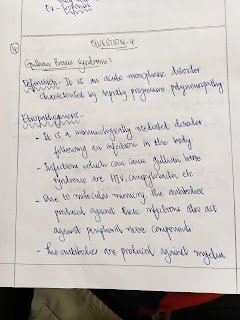 Question-4
4)
Gullian Barre Syndrome:
Definition- It is an acute monophasic disorder
characterised by rapidly progressive polyneuropathy
Etiopathogenesis-
- It is a immunologically mediated disorder
following an infection in the body
- Infections which can cause Gullian barre
syndrome are HIV, campylobacter etc
- Due to molecular mimicry, the antibodies
produced against these infections also act
against peripheral nerve components
- The antibodies are produced against myelin